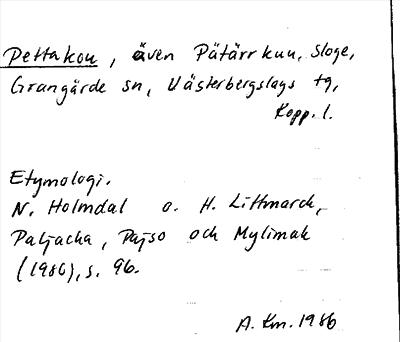 Pettakou, även Pätärrkuu, Sloge,
Grangärde sn, Västerbergslags tg,
Kopp. l.
Etymologi.
N. Holmdal o. H. Littmarck,
Paljacka, Pajso och Mylimak
(1986), s. 96.
A. Km. 1986